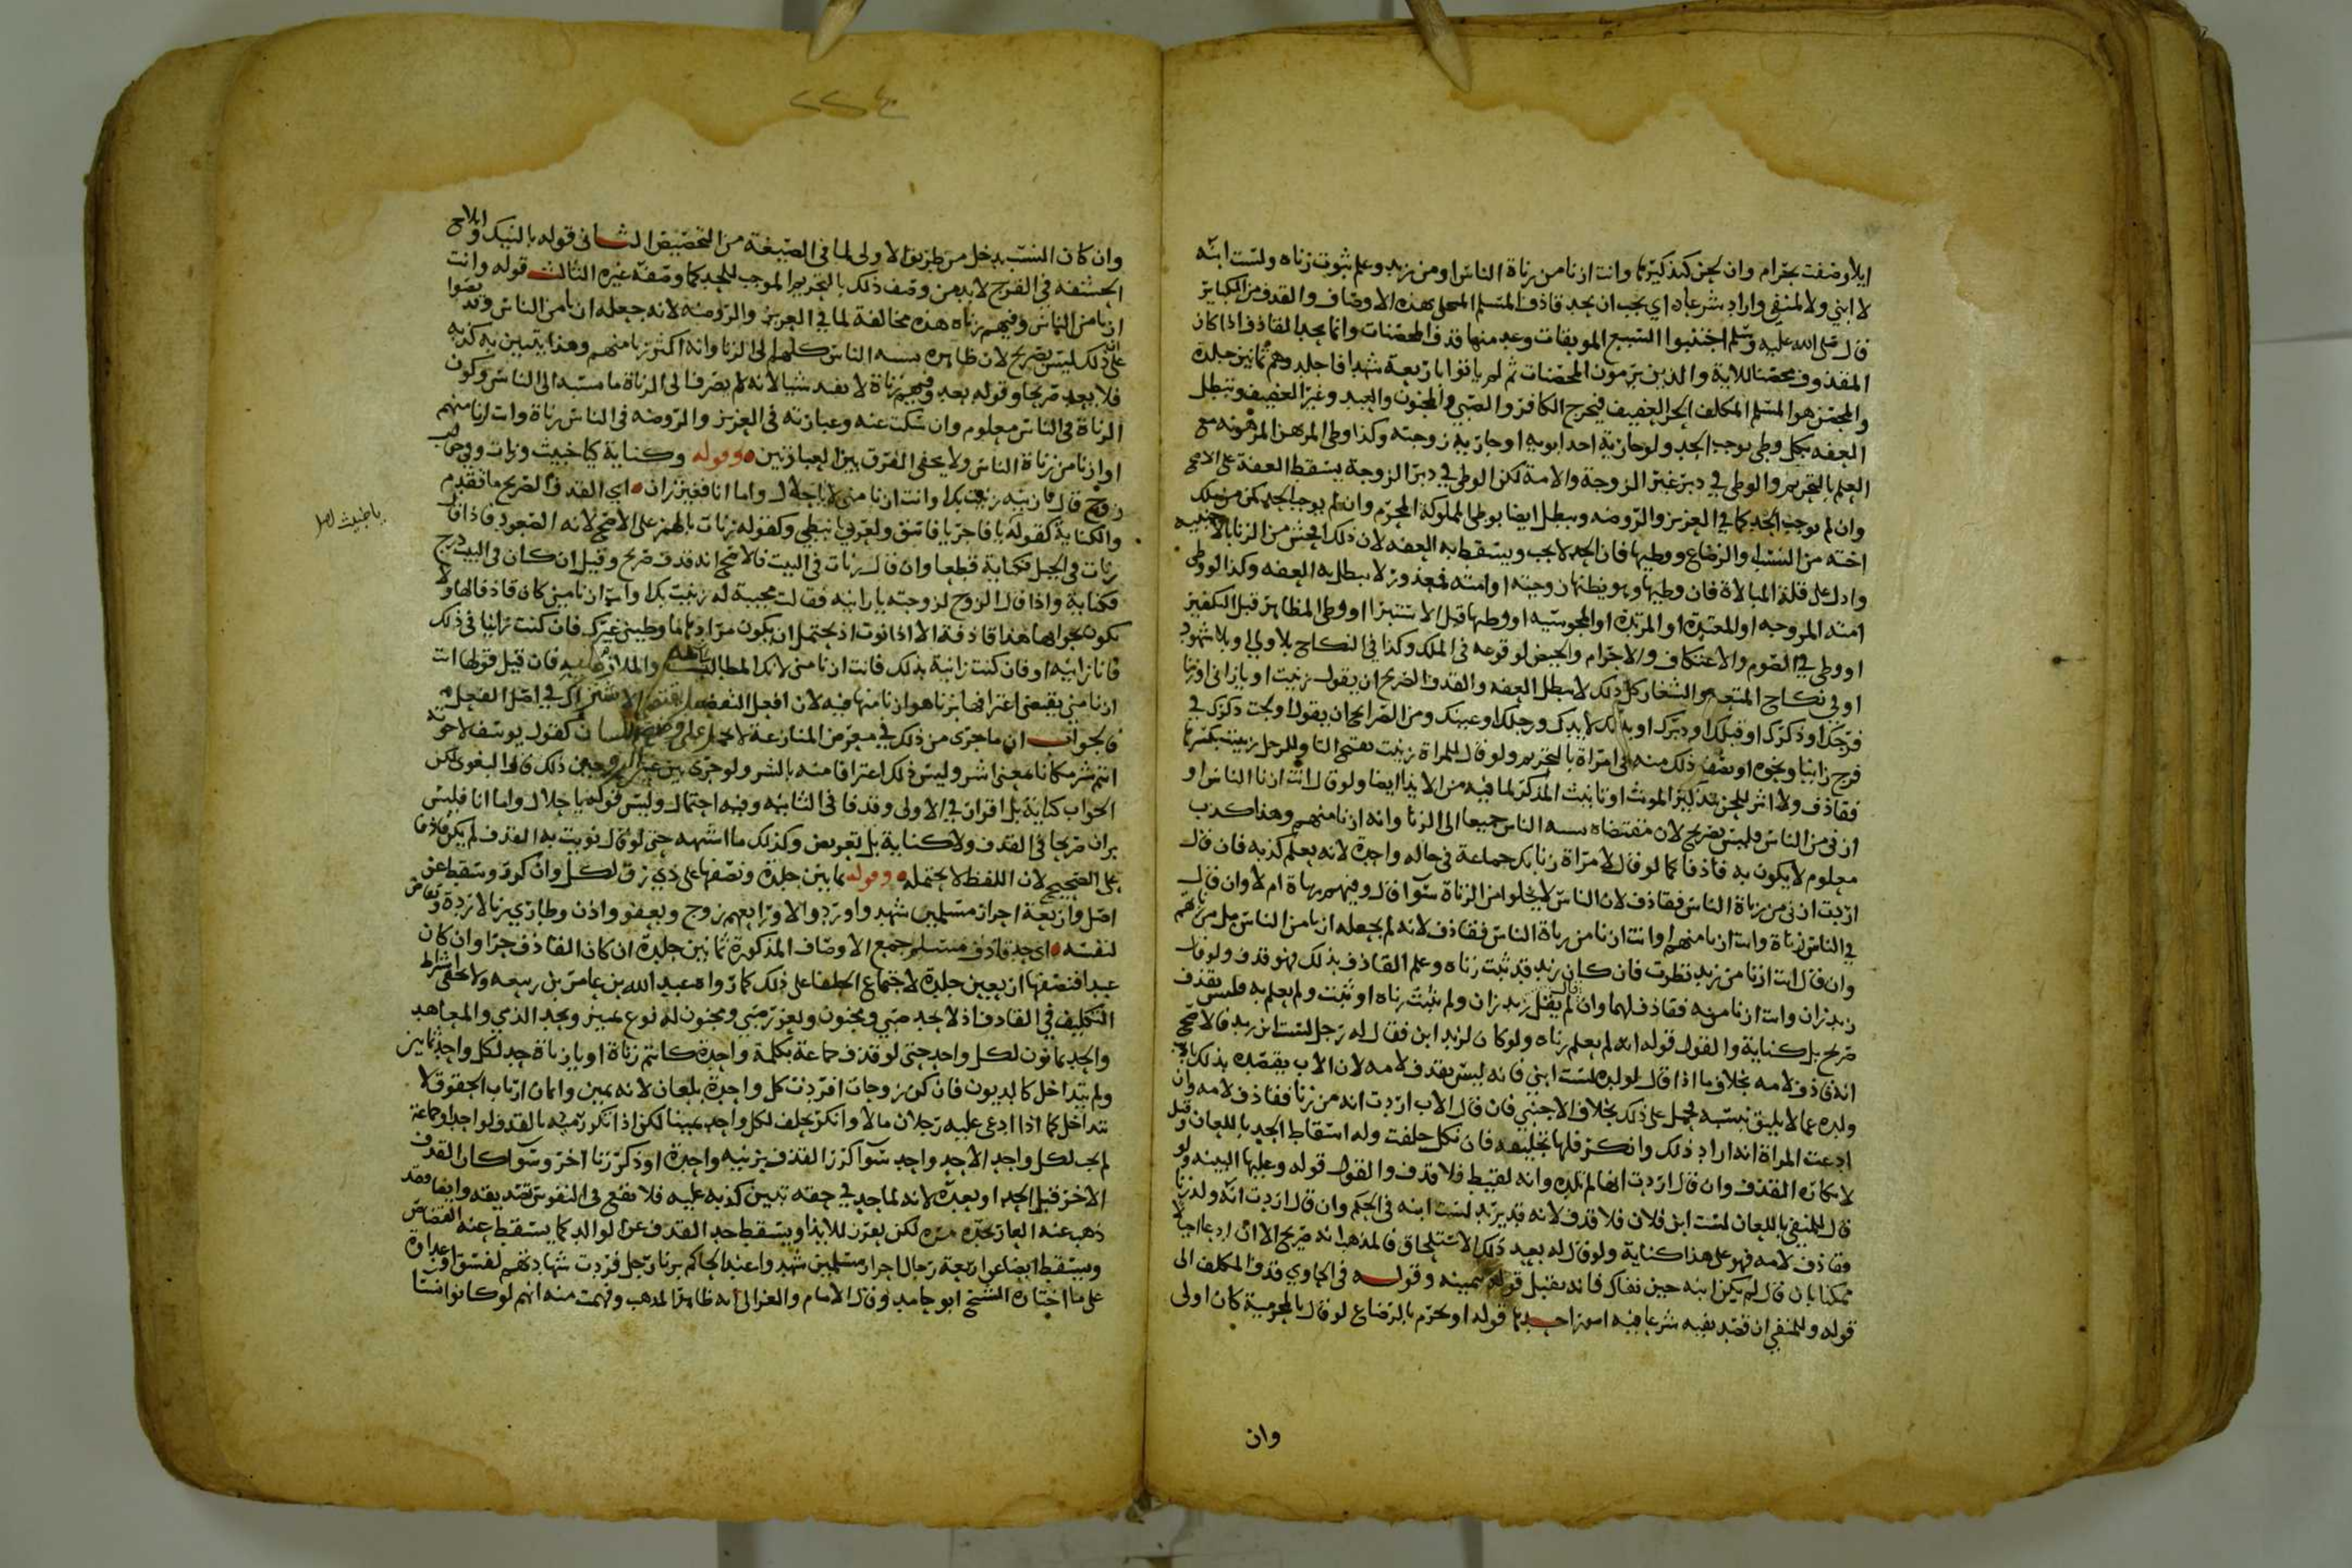 ايلاو وصفت بحرام وان لحن كتذكيرها وانت ازنا من زناة الناس او من زيد وعلم ثبوت زناه ولست ابنه
لا ابني ولا لمنفي واراد شرعا اي يجب ان يحد قاذف المسلم المحلى بهذه الاوصاف والقذف من الكباير
قال صلى الله عليه وسلم اجتنبوا السبع الموبقات وعد منها قذف المحصنات وانما يحد القاذف اذا كان
المقذوف محصنا للاية والذين يرمون المحصنات ثم لم ياتوا باربعة شهدا فاجلدوهم ثمانين جلدة
والمحصن هو المسلم المكلف الحر العفيف فيخرج الكافر والصبي والمجنون والعبد وغير العفيف وتبطل
العفه بكل وطي يوجب الحد ولو جارية احد ابويه او جارية زوجته وكذا وطي المرتهن المرهونه مع
العلم بالتحريم والوطي في دبر غير الزوجة والامة لكن الوطي في دبر الزوجة يسقط العفة على الاصح
وان لم يوجب الحد كما في العزيز والروضه ويبطل ايضا بوطي المملوكة المحرم وان لم يوجب الحد كمن ملك
اخته من النسب او الرضاع ووطيها فان الحد لا يجب ويسقط به العفه لان ذلك افحش من الزنا بالاجنبيه
وادل على قلة المبالاة فان وطيها وهو يظنها زوجته او امته فمعذور لا يبطل به العفه وكذا لو وطي
امته المزوجه او المعتدة او المرتدة او المجوسيه او وطيها قبل الاستبرا او وطي المظاهر قبل التكفير
او وطي في الصوم والاعتكاف والاحرام والحيض لوقوعه في الملك وكذا في النكاح بلا ولي او بلا شهود
او في نكاح المتعه والشغار كل ذلك لا يبطل العفه والقذف الصريح ان يقول زنيت او يا زاني او زنا
فرجك او ذكرك او قبلك او دبرك او بدنك لا يدك ورجلك او عينك ومن الصرايح ان يقول اولجت ذكرك في
فرج زانيا ونحوه او يصف ذلك منه في امراة بالتحريم ولو قال للمراة زنيت بفتح التا وللرجل زنيت بكسرها
فقاذف ولا اثر للحن بتذكير المونث او تانيث المذكر لما فيه من الايذا ايضا ولو قال انت ازنا الناس او
ازنى من الناس فليس بصريح لان مقتضاه نسبه الناس جميعا الى الزنا وانه ازنا منهم وهذا كذب
معلوم لا يكون به قاذفا كما لو قال لامراة زنا بك جماعة في حاله واحدة لانه يعلم كذبه فان قال
اردت ازنى من زناة الناس فقاذف لان الناس لا يخلو من الزناة سوا قال وفيهم زناة ام لا وان قال
في الناس زناة وانت ازنا منهم او انت ازنا من زناة الناس فقاذف لانه لم يجعله ازنا من الناس بل من زناتهم
وان قال انت ازنا من زيد نظرت فان كان زيد قد ثبت زناه وعلم القاذف بذلك فهو قذف ولو قال
زيد زان وانت ازنا منه فقاذف لهما وان لم يقل زيد زان ولم يثبت زناه او ثبت ولم يعلم به فليس بقذف
صريح بل كناية والقول قوله انه لم يعلم زناه ولو كان لزيد ابن فقال له رجل لست ابن زيد فالاصح
انه قاذف لامه بخلاف ما اذا قال لولده لست ابني فانه ليس بقذف لامه لان الاب يقصد بذلك تاديب
ولده عما لا يليق بنسبه فحمل على ذلك بخلاف الاجنبي فان قال الاب اردت انه من زنا فقاذف لامه وان
ادعت المراة انه اراد ذلك وانكر فلها تحليفه فان نكل حلفت وله اسقاط الحد باللعان وقيل
لا مكان القذف وان قال اردت انها لم تلده وانه لقيط فلا قذف والقول قوله وعليها البينه ولو
قال للمنفي باللعان لست ابن فلان فلا قذف لانه قد يريد لست ابنه في الحكم وان قال اردت انه ولد زنا
فقاذف لامه فهو على هذا كناية ولو قال له بعد ذلك الاستلحاق فالمذهب انه صريح الا ان ادعا احتمالا
ممكنا بان قال لم يكن ابنه حين نفاك فانه يقبل قوله بيمينه وقوله في الحاوي قذف المكلف الى
قوله وللمنفي ان قصد نفيه شرعا فيه امور احدها قوله او محرم بالرضاع لو قال بالمحرمية كان اولى
وان
٢٢٤
وان كان النسب يدخل من طريق الاولى لما في الصيغة من التخصيص الثاني قوله بالنيك وايلاج
الحشفه في الفرج لا بد من وصف ذلك بالتحريم الموجب للحد كما وصفه غيره الثالث قوله وانت
ازنا من الناس وفيهم زناه هذه مخالفة لما في العزيز والروضه لانه جعله ازنا من الناس وقد نصوا
على ان ذلك ليس بصريح لان ظاهره نسبه الناس كلهم الى الزنا وانه اكثر زنا منهم وهذا يتبين به كذبه
فلا يعد صريحا وقوله بعد وفيهم زناة لا يفيد شيا لانه لم يصرفه الى الزناة ما نسبه الى الناس وكون
الزناة في الناس معلوم وان سكت عنه وعبارته في العزيز والروضه في الناس زناة وانت ازنا منهم
او ازنا من زناة الناس ولا يخفى الفرق بين العبارتين وقوله وكناية كيا خبيث وزنات وفي جواب
زوج قال يا زانيه زنيت بك او انت ازنا مني لا يا حلال واما انا فغير زان اي القذف الصريح ما تقدم
والكناية كقوله يا فاجر يا فاسق ولعربي يا نبطي وكقوله زنات بالهمز على الاصح لانه الصعود فاذا قال
زنات في الجبل فكناية قطعا وان قال زنات في البيت فالاصح انه قذف صريح وقيل ان كان في البيت درج
فكناية واذا قال الزوج لزوجته يا زانيه فقالت مجيبة له زنيت بك او انت ازنا مني كان قاذفا لها ولا
تكون بجوابها هذا قاذفة الا اذا نوت اذ يحتمل ان يكون مرادها ما وطيني غيرك فان كنت زانيا في ذلك
فانا زانيه او فان كنت زانية بذلك فانت ازنا مني لانك المطالب والمدار عليه فان قيل قولها انت
ازنا مني يقتضي اعترافها بزناها وازنا منها فيه لان افعل التفضيل يقتضي الاشتراك في اصل الفعل
فالجواب ان ما جرى من ذلك في معرض المنازعة لا يحمل على وضع اللسان كقول يوسف لاخوته
انتم شر مكانا بمعنى اشر وليس ذلك اعترافا منه بالشر ولو جرى بين غير الزوجين ذلك قال البغوي لم يكن
الجواب كناية بل اقرار في الاولى وقذفا في الثانيه وفيه احتمال وليس قوله يا حلال واما انا فليس
بزان صريحا في القذف ولا كناية بل تعريض وكذلك ما اشبهه حتى لو قال نويت به القذف لم يكن قاذفا
على الصحيح لان اللفظ لا يحتمله وقوله ثمانين جلدة ونصفها على ذي رق لكل وان كرر وسقط عن
اصل واربعة احرار مسلمين شهدوا وردوا لا ورابعهم زوج وبعفو واذن وطاري زنا لا ردة وتقاص
لنفسه اي حد قاذف مسلم جمع الاوصاف المذكورة ثمانين جلدة ان كان القاذف حرا وان كان
عبدا فنصفها اربعين جلدة لاجتماع الخلفا على ذلك كما رواه عبد الله بن عامر بن ربيعه ولا يخفى اشتراط
التكليف في القاذف اذ لا يحد صبي ومجنون ويعزر صبي ومجنون له نوع تمييز ويحد الذمي والمعاهد
والحد ثمانون لكل واحد حتى لو قذف جماعة بكلمة واحدة كانتم زناة او يا زناة حد لكل واحد ثمانين
ولم يتداخل كالديون فان كن زوجات افردت كل واحدة بلعان لانه يمين وايمان ارباب الحقوق لا
تتداخل كما اذا ادعى عليه رجلان مالا وانكر يحلف لكل واحد يمينا لكن اذا تكرر رميه بالقذف لواحد او جماعة
لم يجب لكل واحد الا حد واحد سوا كرر القذف بزنيه واحدة او ذكر زنا اخر وسوا كان القذف
الاخر قبل الحد او بعده لانه لما حد في حقه تبين كذبه عليه فلا يقع في النفوس تصديقه وايضا فقد
ذهب عنه العار بحده مره لكن يعزر للايذا ويسقط حد القذف عن الوالد كما يسقط عنه القصاص
ويسقط ايضا عن اربعة رجال احرار مسلمين شهدوا عند الحاكم بزنا رجل فردت شهادتهم لفسق او عداوة
على ما اختاره الشيخ ابو حامد وقال الامام والغزالي انه ظاهر المذهب وفهمت منه انهم لو كانوا نسا
يا خبيث اصل